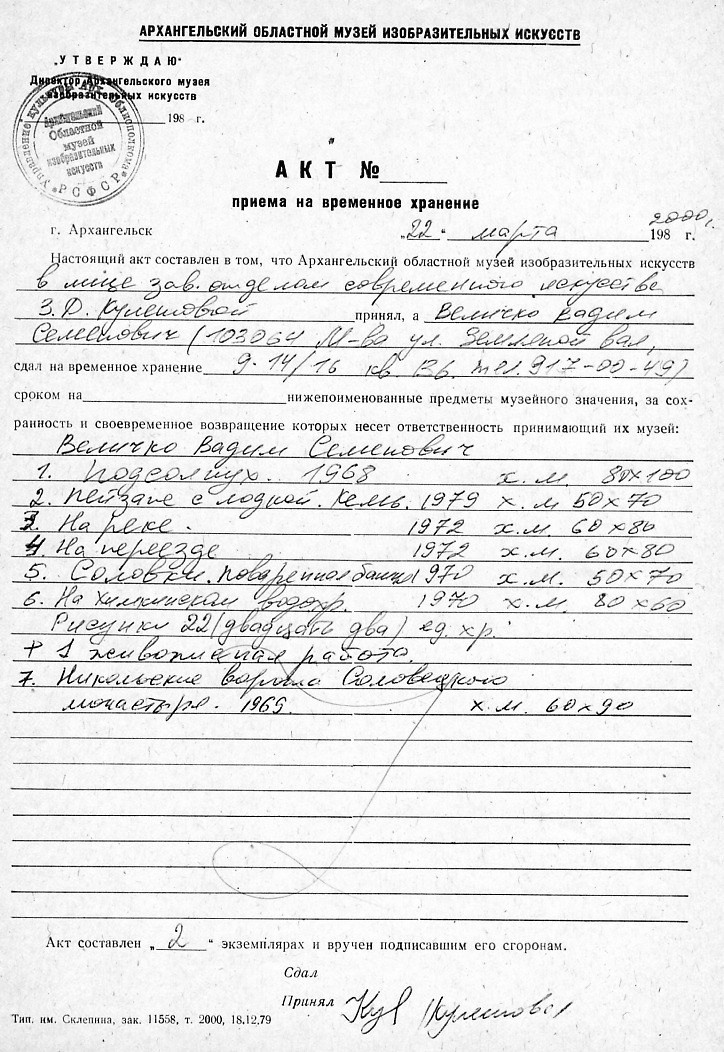 АРХАНГЕЛЬСКИЙ ОБЛАСТНОЙ МУЗЕЙ ИЗОБРАЗИТЕЛЬНЫХ ИСКУССТВ
„УТВЕРЖДАЮ"
Директор Архангельского музея
изобразительных искусств
198 г.
Управление культуры Арх. облисполкома
РСФСР
Архангельский
Областной
музей
изобразительных
искусств
АКТ №
приема на временное хранение
г. Архангельск „22" марта 198 г. 2000 г.
Настоящий акт составлен в том, что Архангельский областной музей изобразительных искусств
в лице зав. отделом современного искусства
З.Д. Кулешовой принял, а Величко Вадим
Семенович (103064 М-ва ул. Земляной вал,
сдал на временное хранение д. 14/16 кв. 136. тел. 917-00-49)
сроком на нижепоименованные предметы музейного значения, за сох-
ранность и своевременное возвращение которых несет ответственность принимающий их музей:
Величко Вадим Семенович
1. Подсолнух. 1968 х.м. 80х100
2. Пейзаж с лодкой. Кемь. 1979 х.м 50х70
3. На реке. 1972 х.м. 60х80
4. На переезде 1972 х.м. 60х80
5. Соловки. Поваренная башня 1970 х.м. 50х70
6. На Химкинском водохр. 1970 х.м. 80х60
Рисунки 22 (двадцать два) ед. хр.
+ 1 живописная работа.
7. Никольские ворота Соловецкого
монастыря. 1969. х.м. 60х90
Акт составлен „2" экземплярах и вручен подписавшим его сторонам.
Сдал
Принял Кул Кулешова
Тип. им. Склепина, зак. 11558, т. 2000, 18.12.79